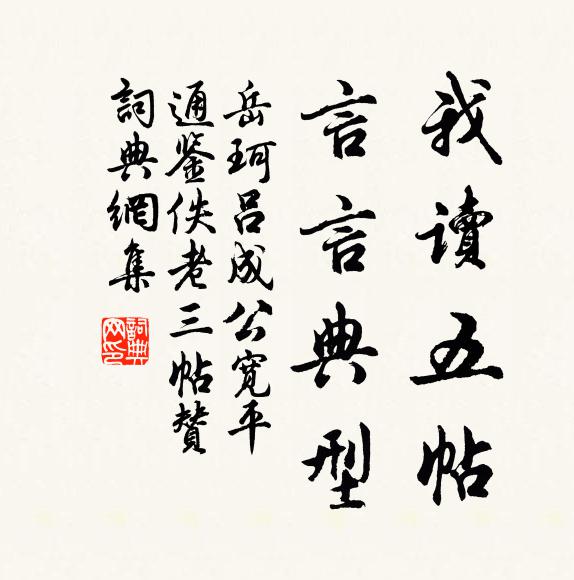 我讀五帖
言言典型
岳珂呂成公寬平
通鑒佚老三帖贊
詞典網集
詞典網印